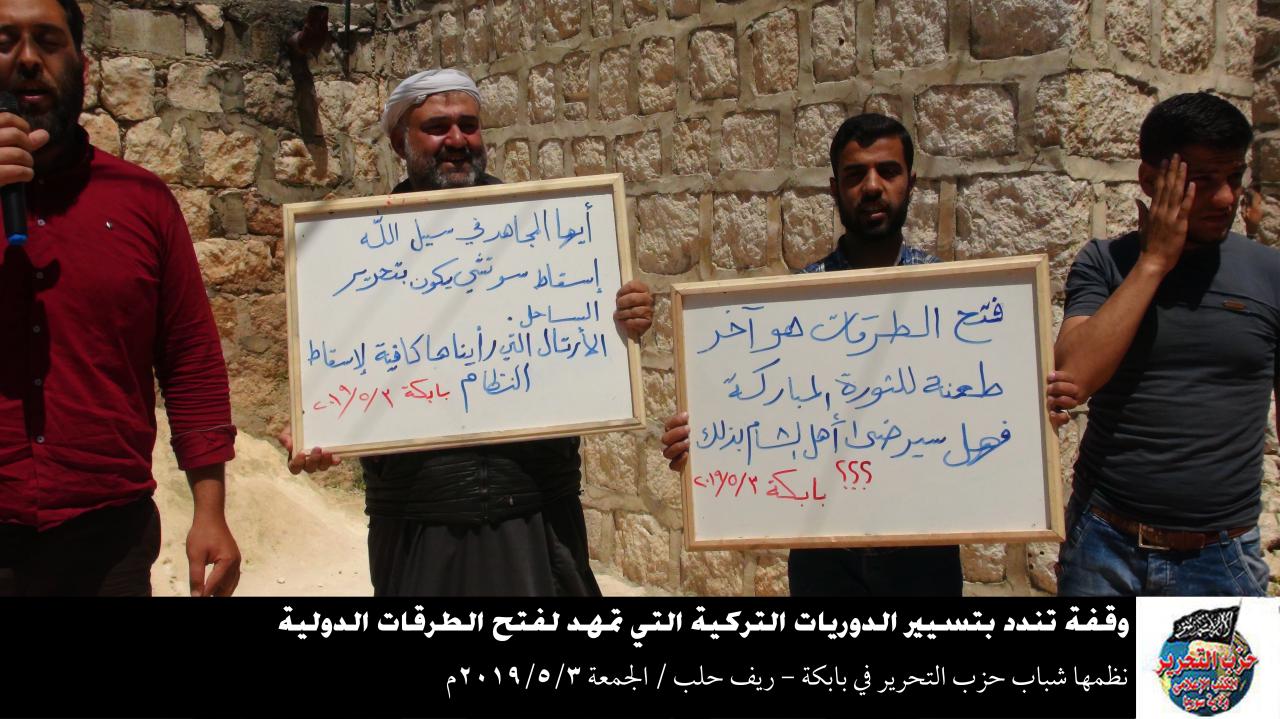 أيها المجاهد في سبيل الله
إسقاط سوتشي يكون بتحرير
الساحل.
الأرتال التي رأيناها كافية لإسقاط
النظام بابكة ٢٠١٩/٥/٣
فتح الطرقات هو آخر
طعنة للثورة المباركة
فهل سيرضى أهل الشام بذلك
؟؟؟ بابكة ٢٠١٩/٥/٣
وقفة تندد بتسيير الدوريات التركية التي تمهد لفتح الطرقات الدولية
نظمها شباب حزب التحرير في بابكة - ريف حلب / الجمعة ٢٠١٩/٥/٣م
حزب التحرير
المكتب الإعلامي
ولاية سوريا